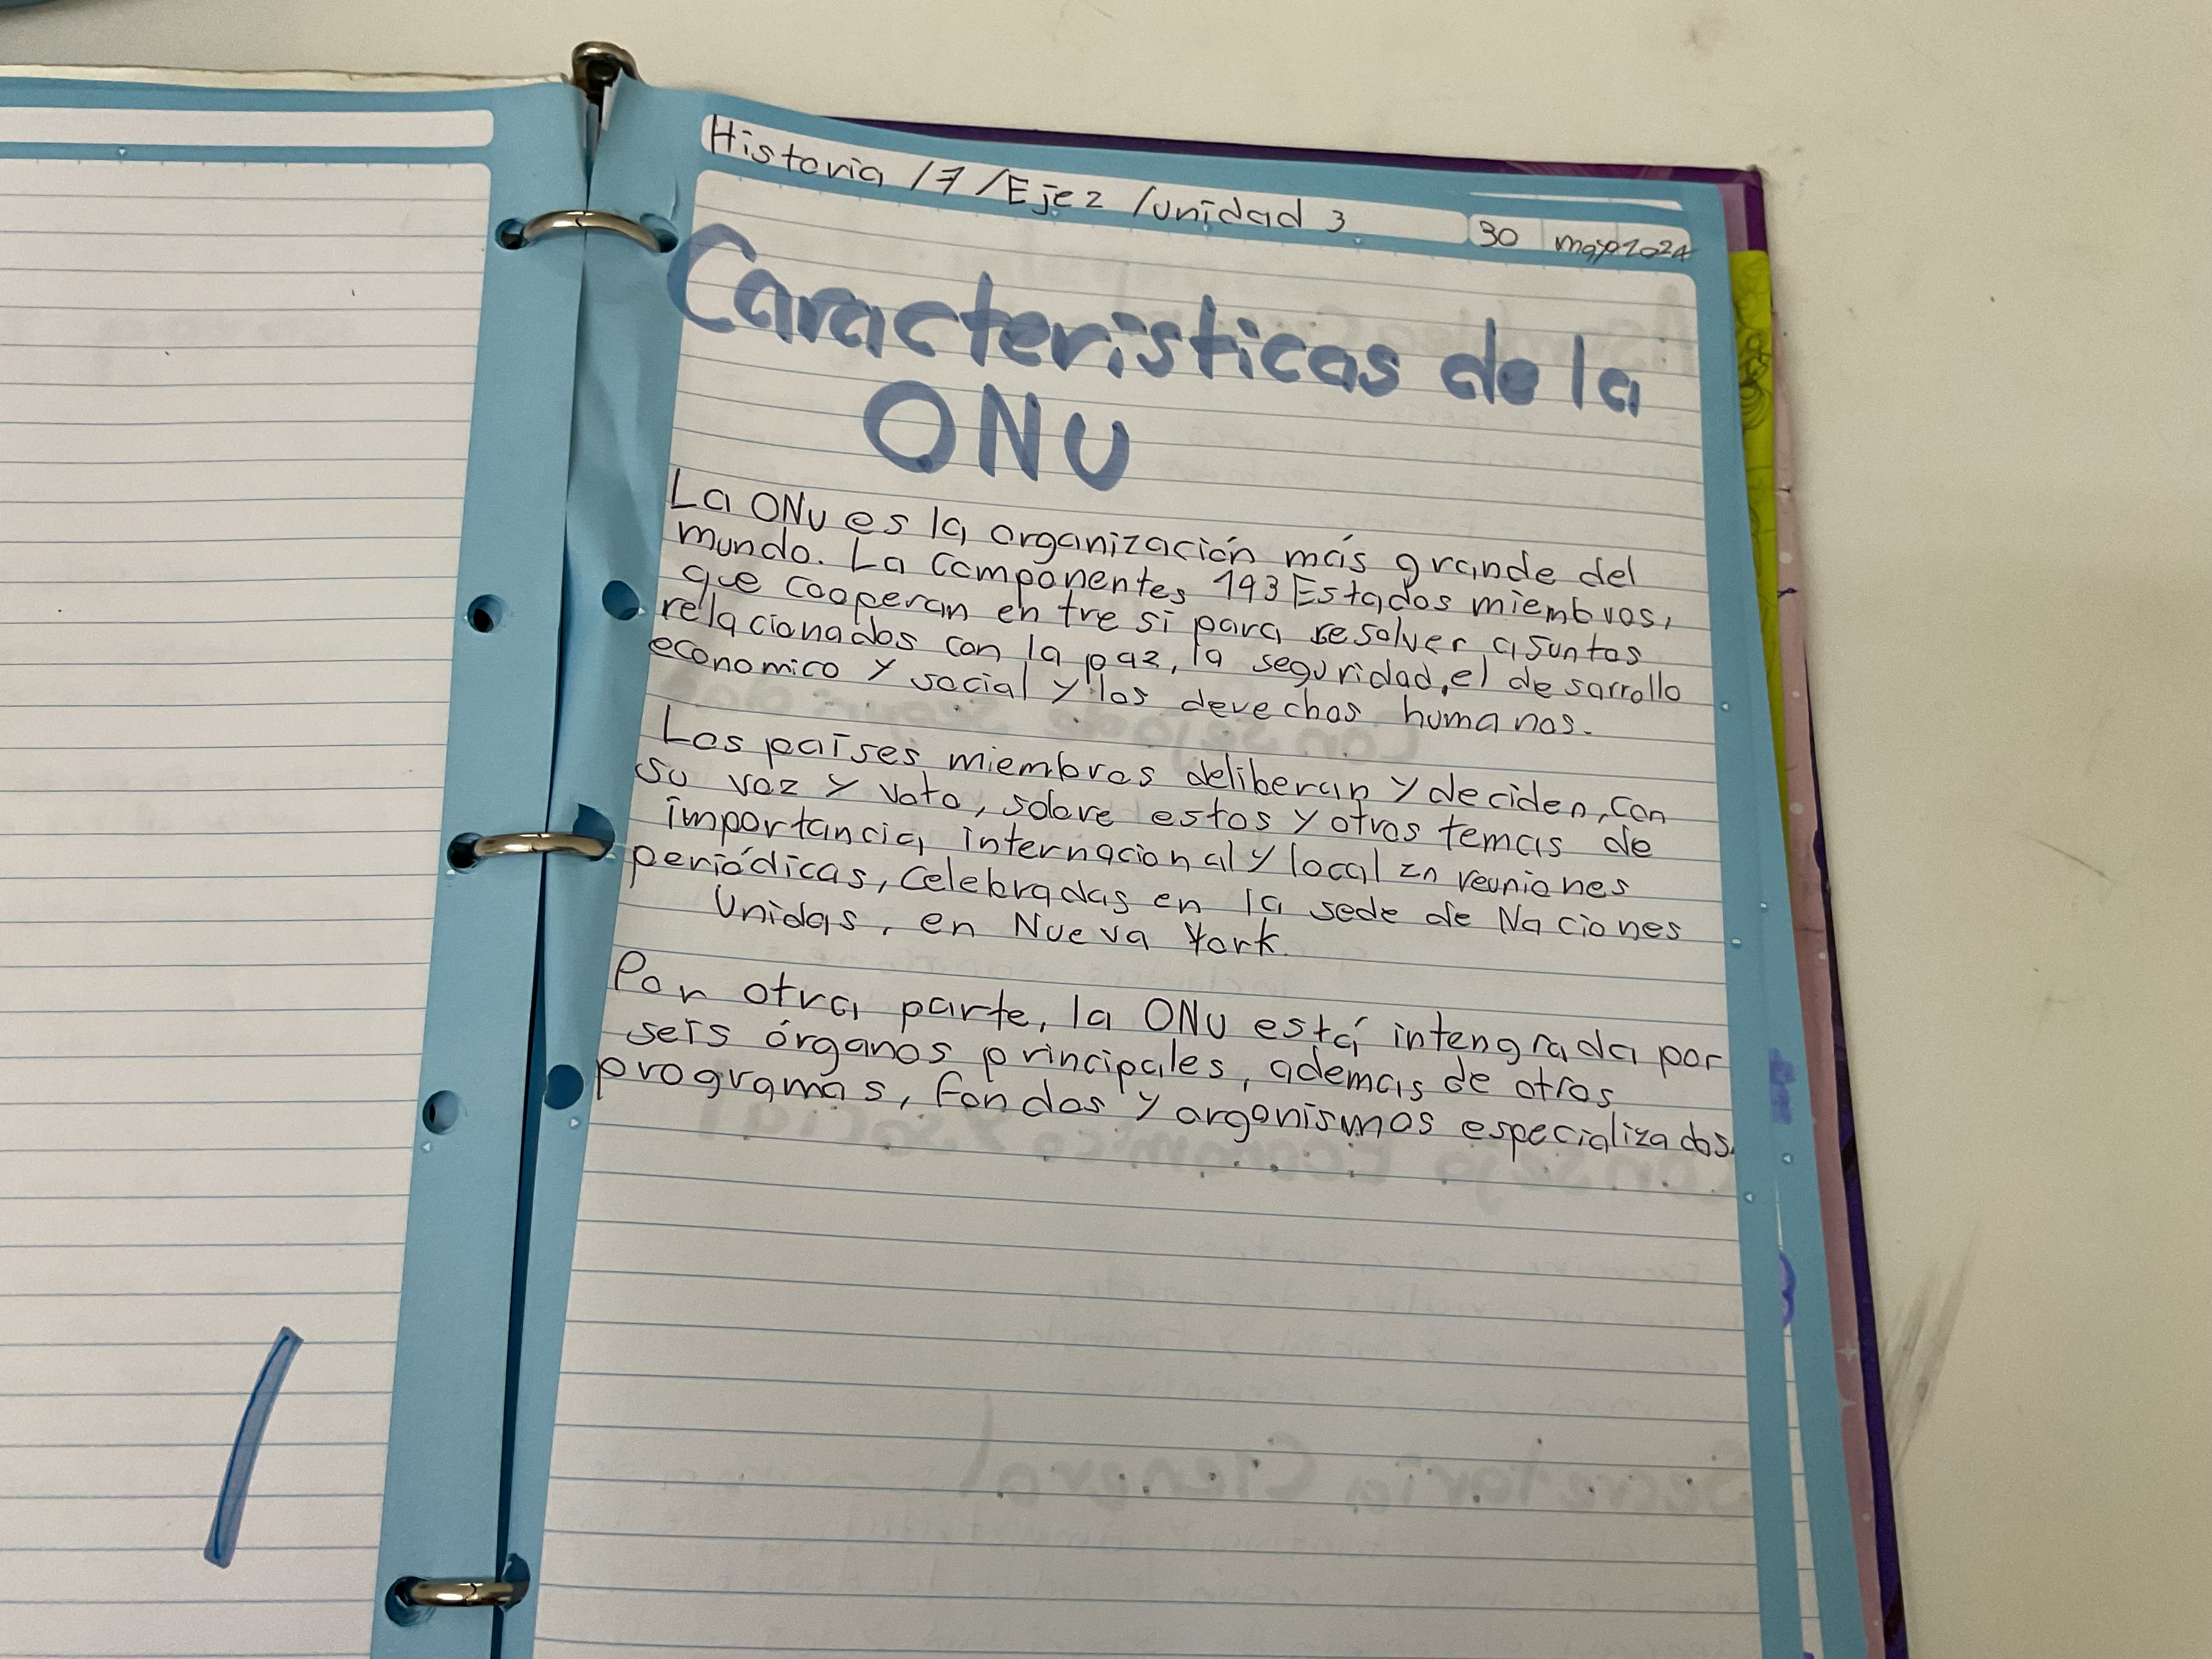 Historia /7/Eje 2 /unidad 3
30 mayo 2024
Caracteristicas de la
ONU
La ONU es la organización más grande del
mundo. La componentes 193 Estados miembros,
que cooperan en tre si para resolver asuntos
relacionados con la paz, la seguridad, el de sarrollo
economico y social y los derechos humanos.
Los países miembros deliberan y deciden, con
su voz y voto, sobre estos y otros temas de
importancia internacional y local en reuniones
periódicas, celebradas en la sede de Naciones
Unidas, en Nueva York.
Por otra parte, la ONU está intengrada por
seis órganos principales, ademas de otros
programas, fondos y arganismos especializados.